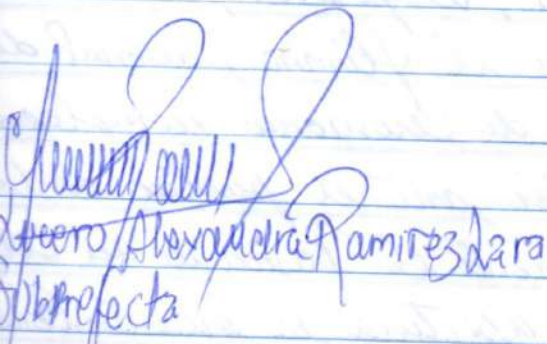 Lucero Alexandra Ramirez Lara
Subprefecta